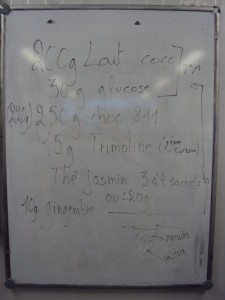 200g Lait coco
30g glucose
(220g) 250g choc 811
15g Trimoline
Thé Jasmin 3 à 4 sachets
ou 20g
10g gingembre